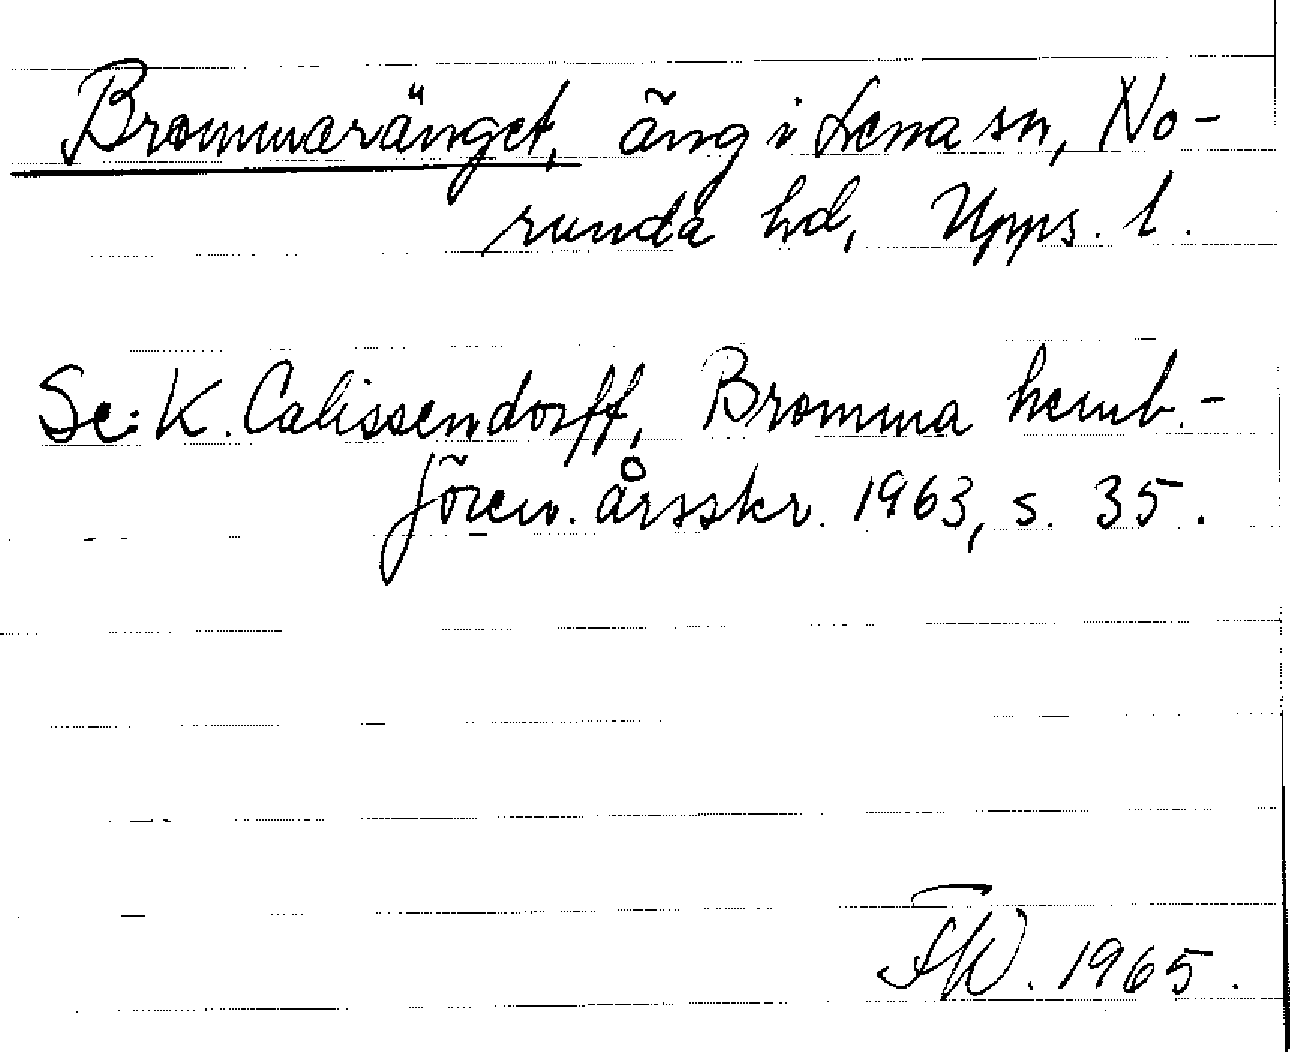 Brommaränget, äng i Lena sn, No-
runda hd, Upps. l.
Se: K. Calissendorff, Bromma hemb.-
fören. årsskr. 1963, s. 35.
FW. 1965.